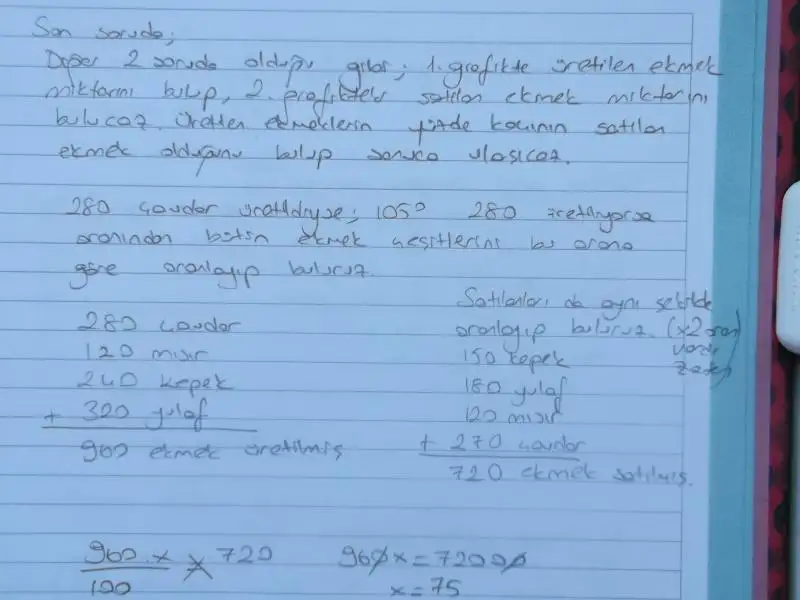 Son soruda;
Diğer 2 soruda olduğu gibi; 1. grafikte üretilen ekmek
miktarını bulup, 2. grafikteki satılan ekmek miktarını
bulucaz. Üretilen ekmeklerin yüzde kaçının satılan
ekmek olduğunu bulup sonuca ulaşıcaz.
280 çavdar üretildiyse; 105° 280 üretiliyorsa
oranından bütün ekmek çeşitlerini bu orana
göre oranlayıp buluruz.
Satılanları da aynı şekilde
oranlayıp buluruz. (x2 oran
vardı
zaten)
280 çavdar
120 mısır
240 kepek
+ 320 yulaf
960 ekmek üretilmiş
150 kepek
180 yulaf
120 mısır
+ 270 çavdar
720 ekmek satılmış.
960 . x 720
100
960x = 72000
x = 75